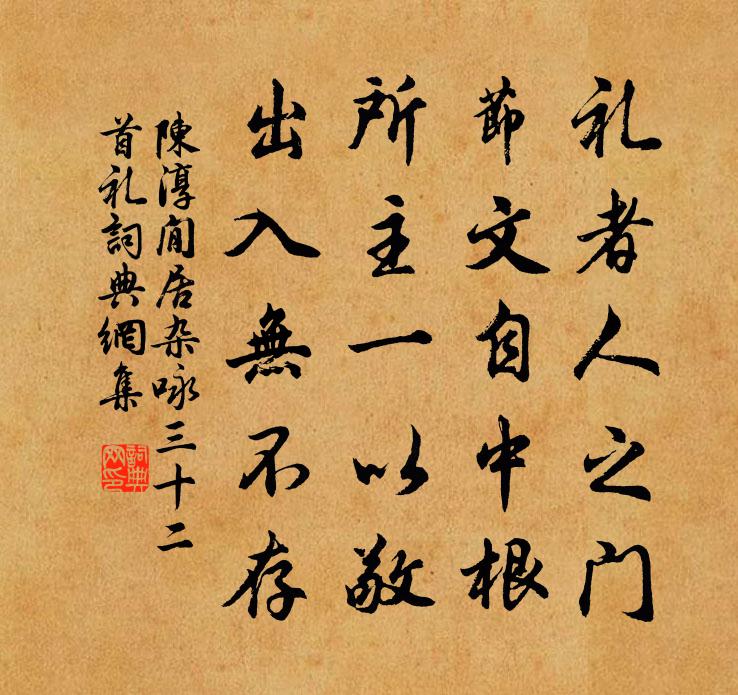 礼者人之门
節文自中根
所主一以敬
出入無不存
陳淳闲居杂咏三十二
首礼詞典網集
詞典
网印